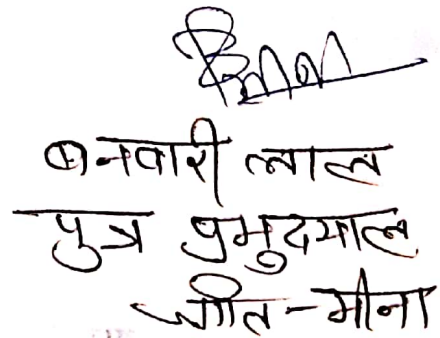 बनवारी लाल
पुत्र प्रभुदयाल
जाति - मीना